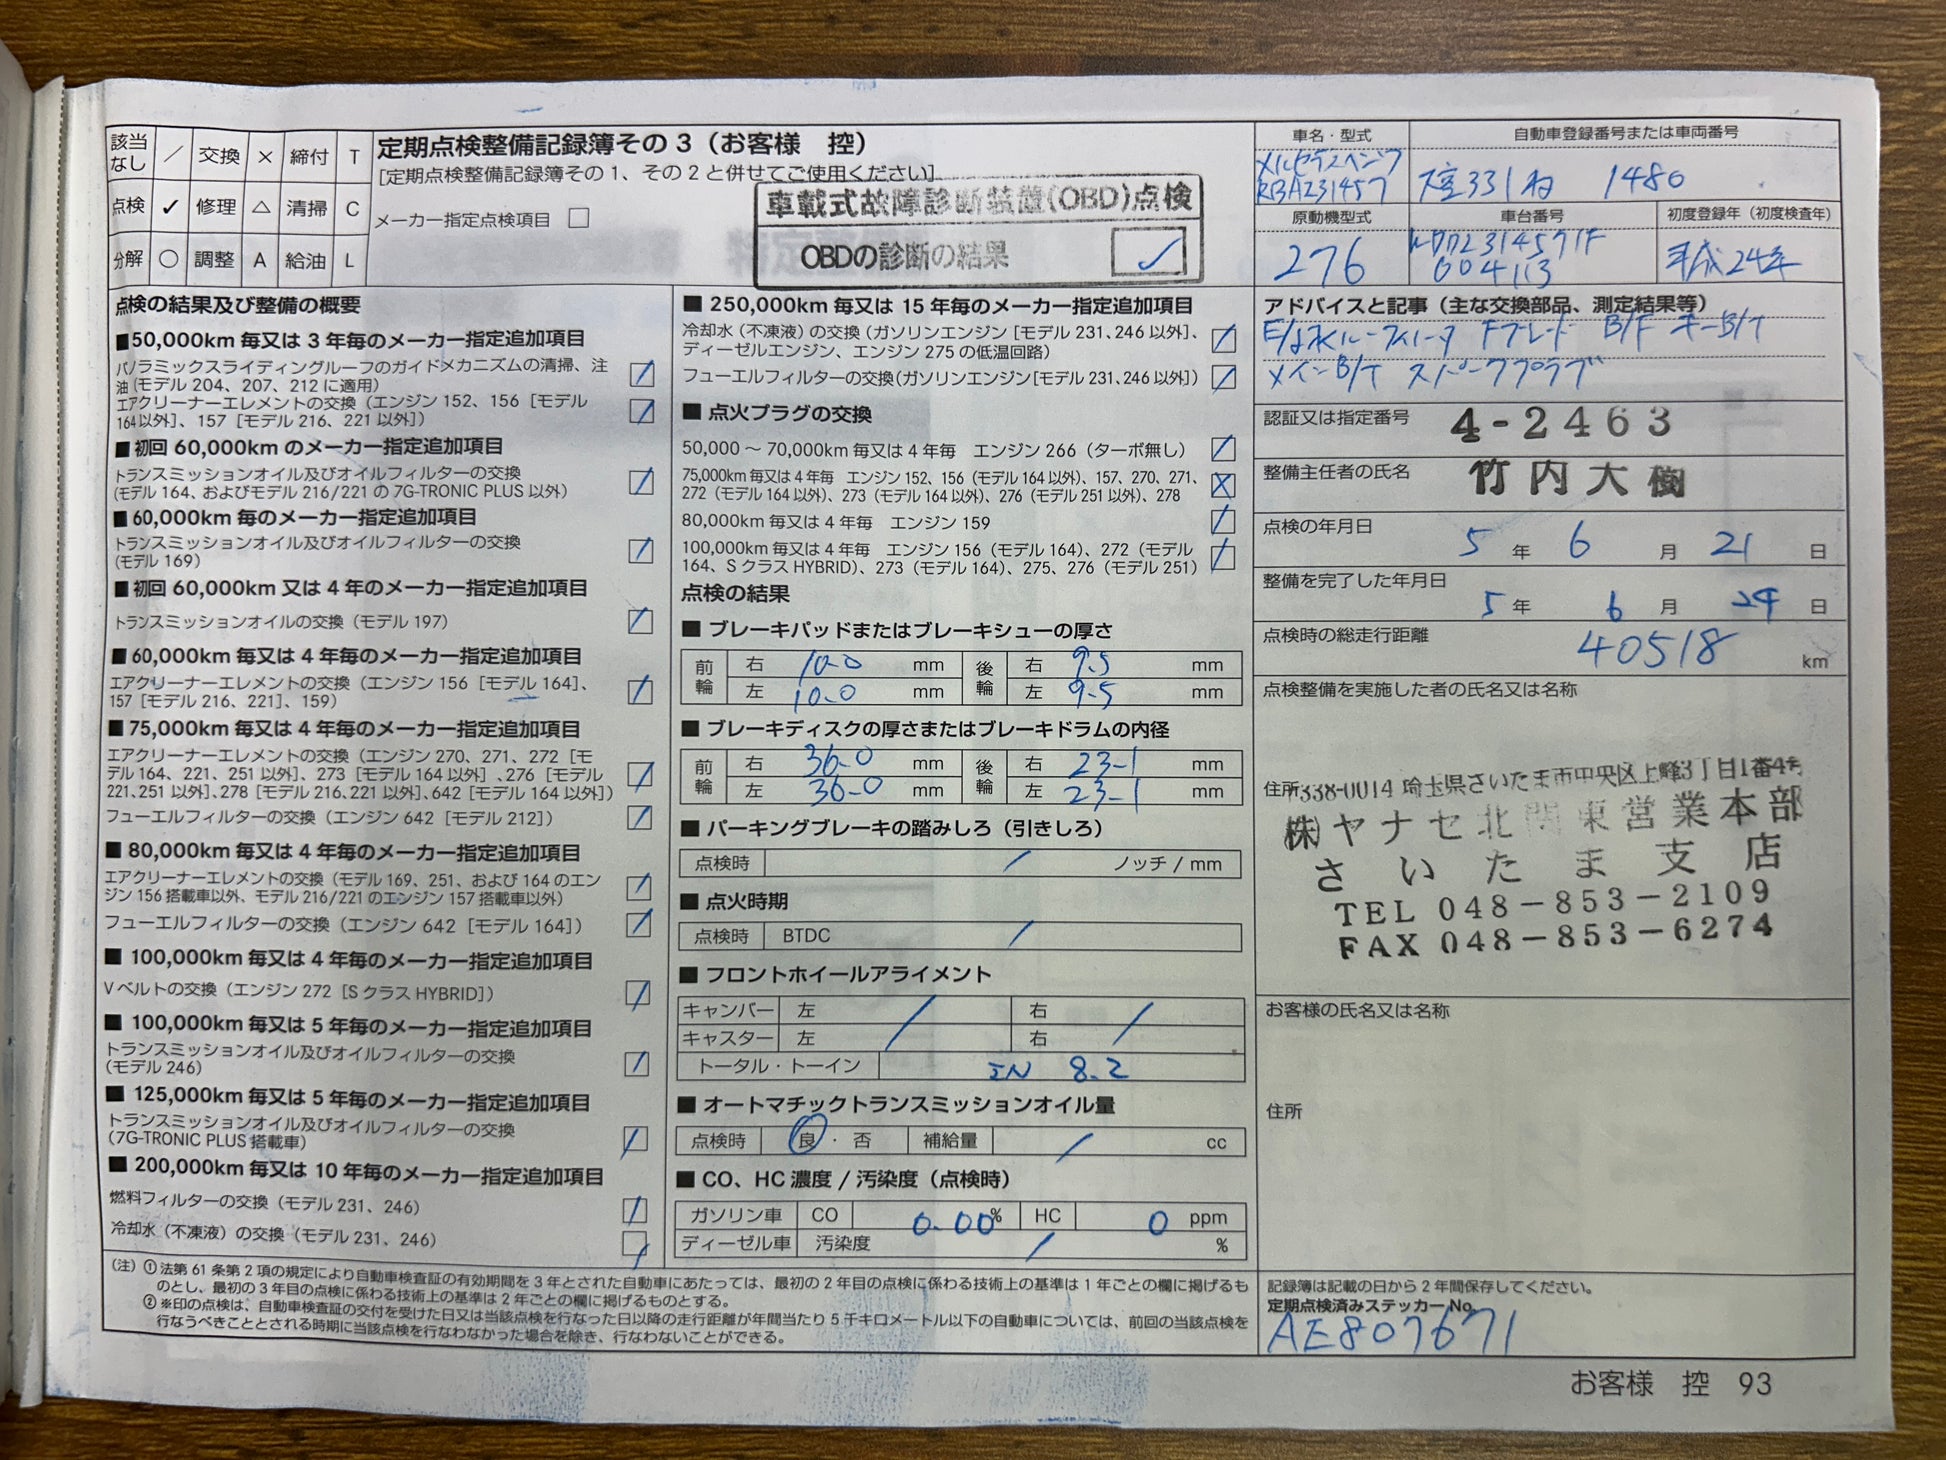 該当なし ／ 交換 × 締付 T
点検 ✓ 修理 △ 清掃 C
分解 ○ 調整 A 給油 L
定期点検整備記録簿その3（お客様　控）
[定期点検整備記録簿その1、その2と併せてご使用ください]
メーカー指定点検項目 □
車載式故障診断装置(OBD)点検
OBDの診断の結果 ✓
車名・型式
メルセデスベンツ
RBA231457
自動車登録番号または車両番号
331 ね 1480
原動機型式
276
車台番号
WDD2314571F
004113
初度登録年（初度検査年）
平成24年
点検の結果及び整備の概要
■50,000km 毎又は 3 年毎のメーカー指定追加項目
パノラミックスライディングルーフのガイドメカニズムの清掃、注
油（モデル 204、207、212 に適用）
エアクリーナーエレメントの交換（エンジン 152、156［モデル
164以外］、157［モデル 216、221 以外］）
■初回 60,000km のメーカー指定追加項目
トランスミッションオイル及びオイルフィルターの交換
（モデル 164、およびモデル 216/221 の 7G-TRONIC PLUS 以外）
■60,000km 毎のメーカー指定追加項目
トランスミッションオイル及びオイルフィルターの交換
（モデル 169）
■初回 60,000km 又は 4 年毎のメーカー指定追加項目
トランスミッションオイルの交換（モデル 197）
■60,000km 毎又は 4 年毎のメーカー指定追加項目
エアクリーナーエレメントの交換（エンジン 156［モデル 164］、
157［モデル 216、221］、159）
■75,000km 毎又は 4 年毎のメーカー指定追加項目
エアクリーナーエレメントの交換（エンジン 270、271、272［モ
デル 164、221、251 以外］、273［モデル 164 以外］、276［モデル
221、251 以外］、278［モデル 216、221 以外］、642［モデル 164 以外］）
フューエルフィルターの交換（エンジン 642［モデル 212］）
■80,000km 毎又は 4 年毎のメーカー指定追加項目
エアクリーナーエレメントの交換（モデル 169、251、および 164 のエン
ジン 156 搭載車以外、モデル 216/221 のエンジン 157 搭載車以外）
フューエルフィルターの交換（エンジン 642［モデル 164］）
■100,000km 毎又は 4 年毎のメーカー指定追加項目
V ベルトの交換（エンジン 272［S クラス HYBRID］）
■100,000km 毎又は 5 年毎のメーカー指定追加項目
トランスミッションオイル及びオイルフィルターの交換
（モデル 246）
■125,000km 毎又は 5 年毎のメーカー指定追加項目
トランスミッションオイル及びオイルフィルターの交換
（7G-TRONIC PLUS 搭載車）
■200,000km 毎又は 10 年毎のメーカー指定追加項目
燃料フィルターの交換（モデル 231、246）
冷却水（不凍液）の交換（モデル 231、246）
■250,000km 毎又は 15 年毎のメーカー指定追加項目
冷却水（不凍液）の交換（ガソリンエンジン［モデル 231、246 以外］、
ディーゼルエンジン、エンジン 275 の低温回路）
フューエルフィルターの交換（ガソリンエンジン［モデル 231、246 以外］）
■点火プラグの交換
50,000 ～ 70,000km 毎又は 4 年毎　エンジン 266（ターボ無し）
75,000km 毎又は 4 年毎　エンジン 152、156（モデル 164 以外）、157、270、271、
272（モデル 164 以外）、273（モデル 164 以外）、276（モデル 251 以外）、278
80,000km 毎又は 4 年毎　エンジン 159
100,000km 毎又は 4 年毎　エンジン 156（モデル 164）、272（モデル
164、S クラス HYBRID）、273（モデル 164）、275、276（モデル 251）
点検の結果
■ブレーキパッドまたはブレーキシューの厚さ
前輪 右 10.0 mm 後輪 右 9.5 mm
左 10.0 mm 左 9.5 mm
■ブレーキディスクの厚さまたはブレーキドラムの内径
前輪 右 36.0 mm 後輪 右 23.1 mm
左 36.0 mm 左 23.1 mm
■パーキングブレーキの踏みしろ（引きしろ）
点検時 ／ ノッチ / mm
■点火時期
点検時 BTDC ／
■フロントホイールアライメント
キャンバー 左 ／ 右 ／
キャスター 左 右
トータル・トーイン IN 8.2
■オートマチックトランスミッションオイル量
点検時 良・否 補給量 ／ cc
■CO、HC 濃度 / 汚染度（点検時）
ガソリン車 CO 0.00 % HC 0 ppm
ディーゼル車 汚染度 ／ %
アドバイスと記事（主な交換部品、測定結果等）
Fブレード B/F キーB/T
メインB/T スパークプラグ
認証又は指定番号 4-2463
整備主任者の氏名 竹内大樹
点検の年月日
5 年 6 月 21 日
整備を完了した年月日
5 年 6 月 24 日
点検時の総走行距離 40518 km
点検整備を実施した者の氏名又は名称
住所 〒338-0014 埼玉県さいたま市中央区上峰3丁目1番4号
㈱ヤナセ北関東営業本部
さいたま支店
TEL 048－853－2109
FAX 048－853－6274
お客様の氏名又は名称
住所
（注）① 法第 61 条第 2 項の規定により自動車検査証の有効期間を 3 年とされた自動車にあたっては、最初の 2 年目の点検に係わる技術上の基準は 1 年ごとの欄に掲げるも
のとし、最初の 3 年目の点検に係わる技術上の基準は 2 年ごとの欄に掲げるものとする。
② ※印の点検は、自動車検査証の交付を受けた日又は当該点検を行なった日以降の走行距離が年間当たり 5 千キロメートル以下の自動車については、前回の当該点検を
行なうべきこととされる時期に当該点検を行なわなかった場合を除き、行なわないことができる。
記録簿は記載の日から 2 年間保存してください。
定期点検済みステッカー No.
AE807671
お客様　控　93